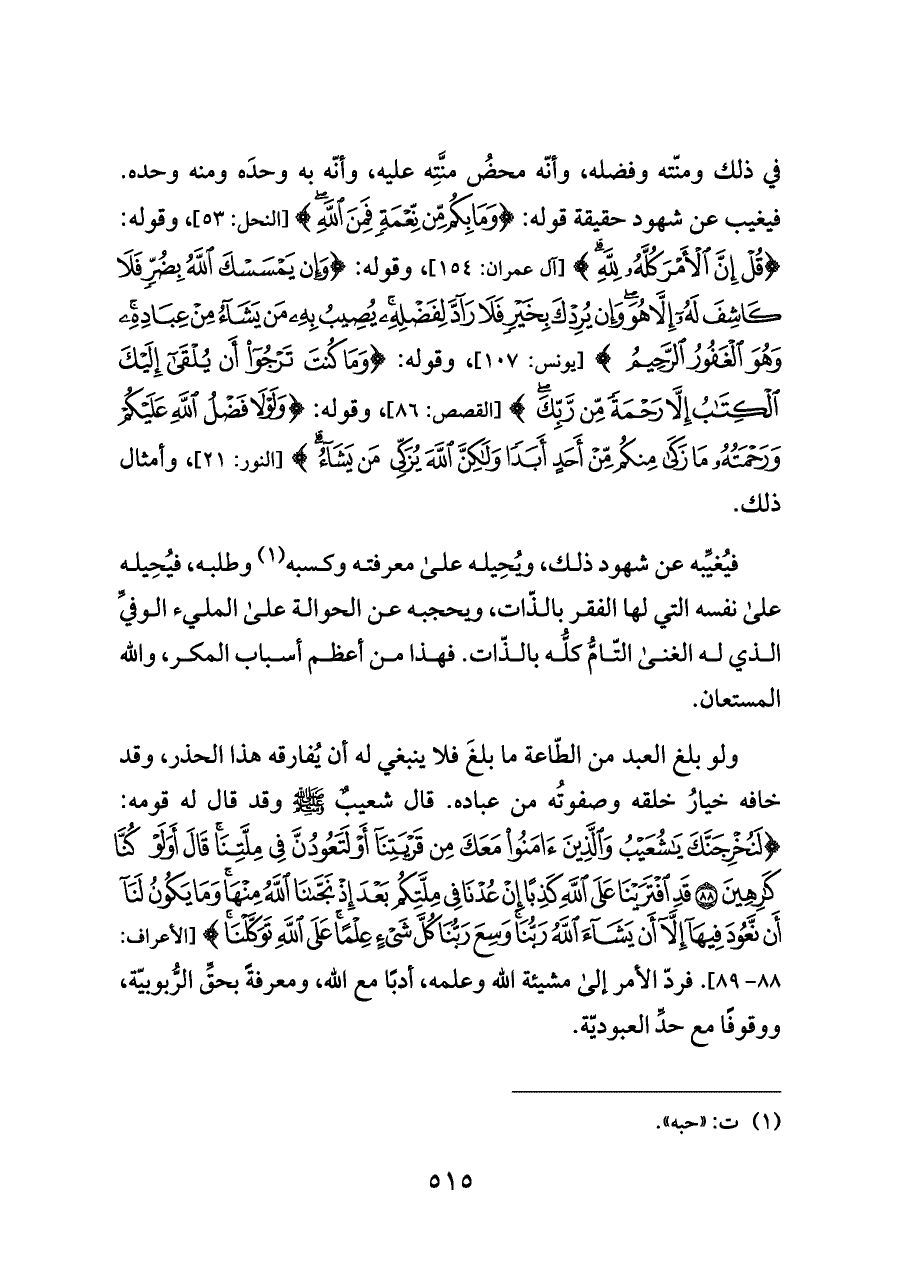 في ذلك ومنّته وفضله، وأنّه محضُ منَّتِه عليه، وأنّه به وحدَه ومنه وحده.
فيغيب عن شهود حقيقة قوله: ﴿وَمَا بِكُم مِّن نِّعْمَةٍ فَمِنَ ٱللَّهِۖ﴾ [النحل: ٥٣]، وقوله:
﴿قُلْ إِنَّ ٱلْأَمْرَ كُلَّهُۥ لِلَّهِۗ﴾ [آل عمران: ١٥٤]، وقوله: ﴿وَإِن يَمْسَسْكَ ٱللَّهُ بِضُرٍّ فَلَا
كَاشِفَ لَهُۥٓ إِلَّا هُوَۖ وَإِن يُرِدْكَ بِخَيْرٍ فَلَا رَآدَّ لِفَضْلِهِۦۚ يُصِيبُ بِهِۦ مَن يَشَآءُ مِنْ عِبَادِهِۦۚ
وَهُوَ ٱلْغَفُورُ ٱلرَّحِيمُ﴾ [يونس: ١٠٧]، وقوله: ﴿وَمَا كُنتَ تَرْجُوٓا۟ أَن يُلْقَىٰٓ إِلَيْكَ
ٱلْكِتَٰبُ إِلَّا رَحْمَةً مِّن رَّبِّكَۖ﴾ [القصص: ٨٦]، وقوله: ﴿وَلَوْلَا فَضْلُ ٱللَّهِ عَلَيْكُمْ
وَرَحْمَتُهُۥ مَا زَكَىٰ مِنكُم مِّنْ أَحَدٍ أَبَدًا وَلَٰكِنَّ ٱللَّهَ يُزَكِّى مَن يَشَآءُۗ﴾ [النور: ٢١]، وأمثال
ذلك.
فيُغيِّبه عن شهود ذلك، ويُحِيله علىٰ معرفته وكسبه(١) وطلبه، فيُحِيله
علىٰ نفسه التي لها الفقر بالذّات، ويحجبه عن الحوالة علىٰ المليء الوفيِّ
الذي له الغنىٰ التّامُّ كلُّه بالذّات. فهذا من أعظم أسباب المكر، والله
المستعان.
ولو بلغ العبد من الطّاعة ما بلغَ فلا ينبغي له أن يُفارقه هذا الحذر، وقد
خافه خيارُ خلقه وصفوتُه من عباده. قال شعيبٌ ﷺ وقد قال له قومه:
﴿لَنُخْرِجَنَّكَ يَٰشُعَيْبُ وَٱلَّذِينَ ءَامَنُوا۟ مَعَكَ مِن قَرْيَتِنَآ أَوْ لَتَعُودُنَّ فِى مِلَّتِنَاۚ قَالَ أَوَلَوْ كُنَّا
كَٰرِهِينَ ٨٨ قَدِ ٱفْتَرَيْنَا عَلَى ٱللَّهِ كَذِبًا إِنْ عُدْنَا فِى مِلَّتِكُم بَعْدَ إِذْ نَجَّىٰنَا ٱللَّهُ مِنْهَاۚ وَمَا يَكُونُ لَنَآ
أَن نَّعُودَ فِيهَآ إِلَّآ أَن يَشَآءَ ٱللَّهُ رَبُّنَاۚ وَسِعَ رَبُّنَا كُلَّ شَىْءٍ عِلْمًاۚ عَلَى ٱللَّهِ تَوَكَّلْنَاۚ﴾ [الأعراف:
٨٨- ٨٩]. فردّ الأمر إلىٰ مشيئة الله وعلمه، أدبًا مع الله، ومعرفةً بحقِّ الرُّبوبيّة،
ووقوفًا مع حدِّ العبوديّة.
(١) ت: «حبه».
٥١٥